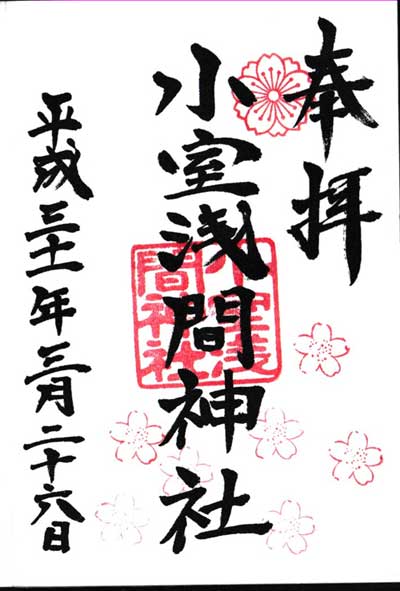 奉拝
小室浅間神社
小室浅
間神社
平成三十一年三月二十六日